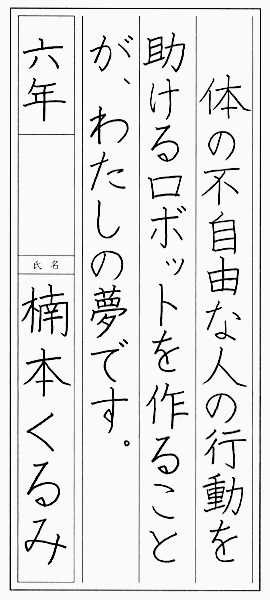 体の不自由な人の行動を
助けるロボットを作ること
が、わたしの夢です。
六年
氏名
楠本くるみ